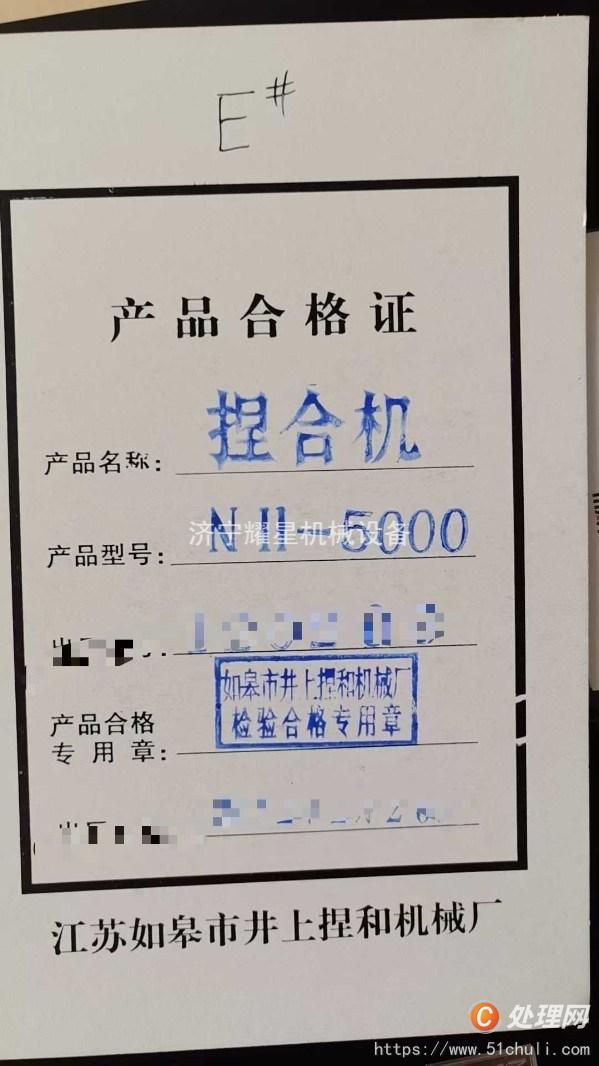 E#
产品合格证
产品名称: 捏合机
产品型号: NH-5000
济宁耀星机械设备
如皋市井上捏和机械厂
检验合格专用章
产品合格
专用章:
江苏如皋市井上捏和机械厂
C 处理网
https://www.51chuli.com